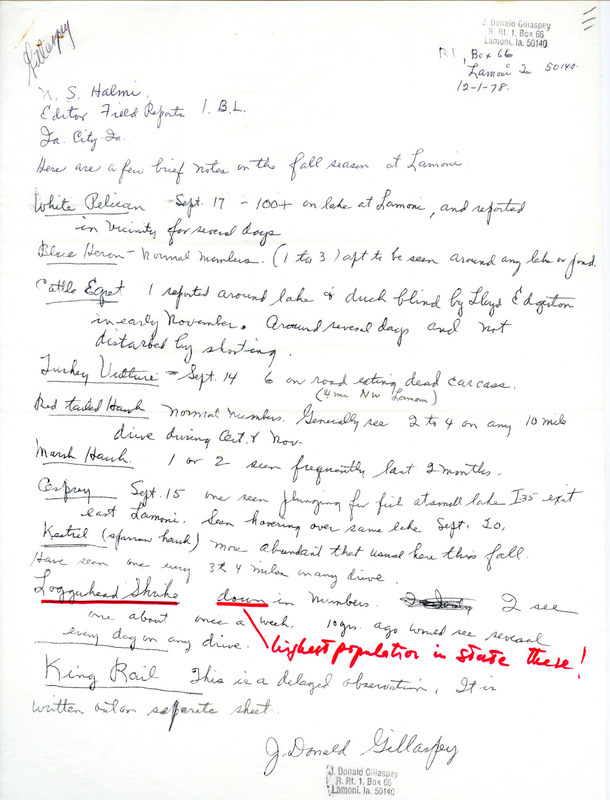 Gillaspey
J. Donald Gillaspey
R. Rt. 1, Box 66
Lamoni, Ia. 50140
R1, Box 66
Lamoni Ia 50140
12-1-78.
N. S. Halmi
Editor Field Reports I.B.L.
Ia. City Ia.
Here are a few brief notes on the fall season at Lamoni
White Pelican Sept. 17 - 100+ on lake at Lamoni, and reported
in vicinity for several days
Blue Heron - Normal numbers. (1 to 3) apt to be seen around any lake or pond.
Cattle Egret 1 reported around lake & duck blind by Lloyd Edgerton
in early November. Around several days and not
disturbed by shooting.
Turkey Vulture - Sept. 14 6 on road eating dead carcass.
(4 mi NW Lamoni)
Red tailed Hawk Normal numbers. Generally see 2 to 4 on any 10 mile
drive during Oct. & Nov
Marsh Hawk. 1 or 2 seen frequently last 2 months.
Osprey Sept. 15 one seen plunging for fish at small lake I35 exit
east Lamoni. Seen hovering over same lake Sept. 20.
Kestrel (sparrow hawk) more abundant that usual here this fall.
Have seen one every 3 to 4 miles on any drive.
Loggerhead Shrike down in numbers. I see
one about once a week. 10 yrs. ago would see several
every day on any drive.
highest population in state there!
King Rail This is a delayed observation, It is
written out on seperate sheet.
J. Donald Gillaspey
J. Donald Gillaspey
R. Rt. 1, Box 66
Lamoni, Ia. 50140